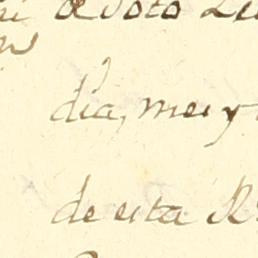 de Soto
dia, mes y
de esta R